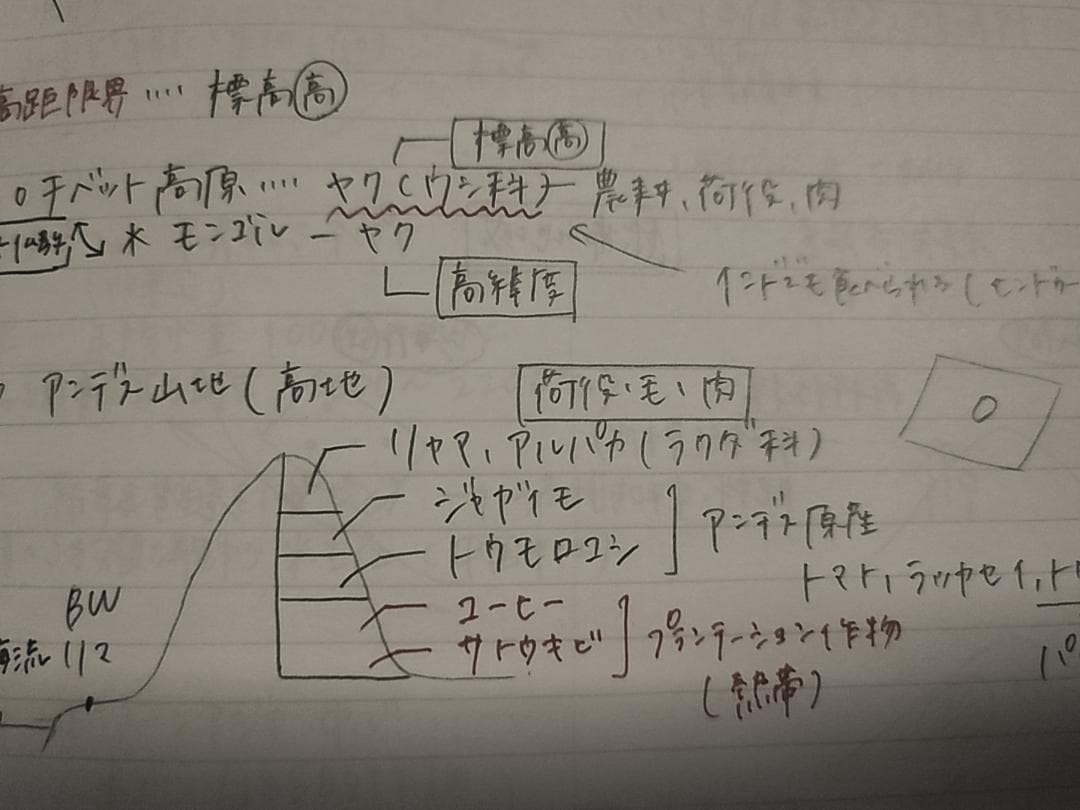 高距限界 ‥‥ 標高高
標高高
○チベット高原 ‥‥ ヤク(ウシ科)ー 農耕、荷役、肉
※ モンゴル ー ヤク
高緯度
インドでも食べられる(ヒンドゥー
アンデス山地(高地)
荷役・毛・肉
リャマ、アルパカ(ラクダ科)
ジャガイモ
トウモロコシ
アンデス原産
トマト、ラッカセイ、ト
コーヒー
サトウキビ
プランテーション作物
(熱帯)
BW
海流
パ